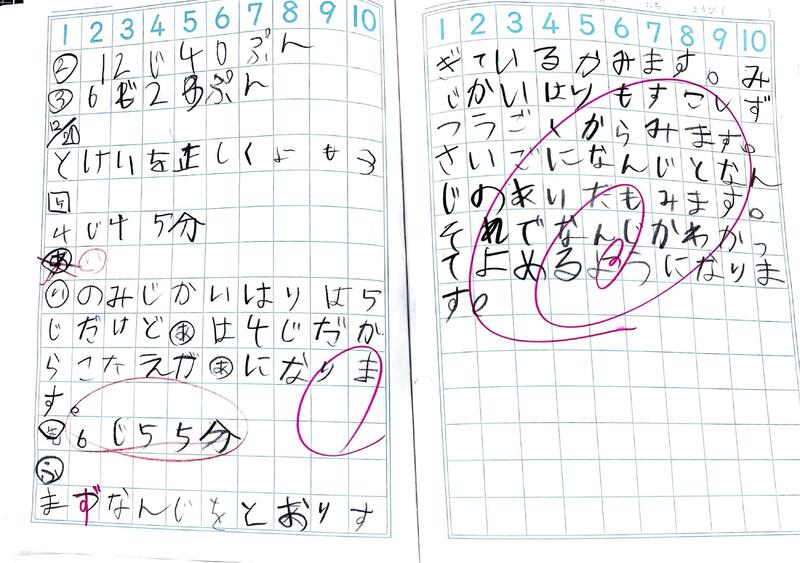 1 2 3 4 5 6 7 8 9 10
② 12じ40ぷん
③ 6じ20ぷん
12/20
とけいを正しくよもう
5
4じ45分
あ い
いのみじかいはりは5
じだけどあは4じだか
らこたえがあになりま
す。
先 6じ55分
ふ
まずなんじをとおりす
1 2 3 4 5 6 7 8 9 10
ぎているかみます。み
じかいはりもすこしず
つうごくからみます。
さいごになんじとなん
じのあいだもみます。
それでなんじかわかっ
てよめるようになりま
す。